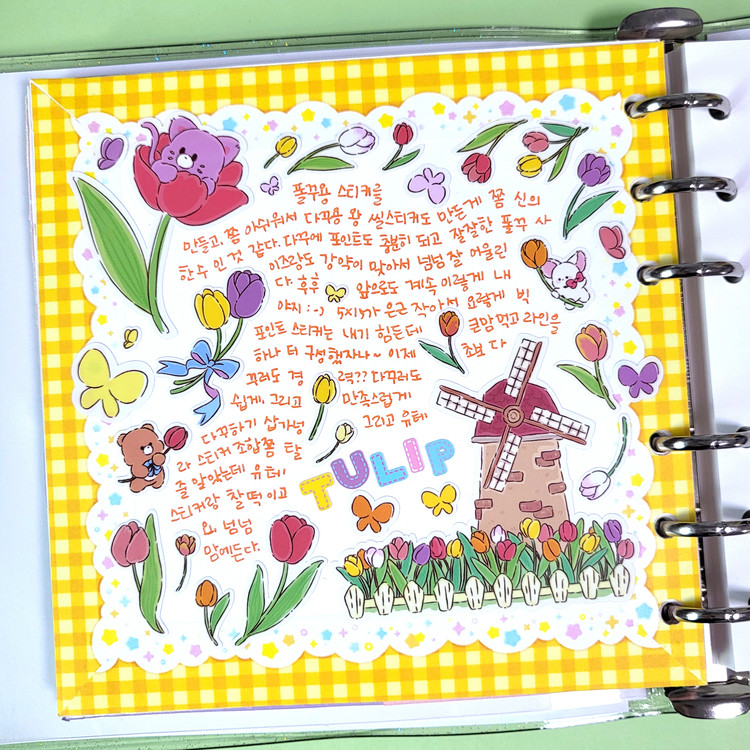 폴꾸용 스티커를
만들고, 쫌 아쉬워서 다꾸용 왕 씰스티커도 만든게 쫌 신의
한수 인 것 같다. 다꾸에 포인트도 충분히 되고 잘잘한 폴꾸 사
이즈랑도 강약이 맞아서 넘넘 잘 어울린
다. 후후 앞으로도 계속 이렇게 내
야지 :-) 5x7가 은근 작아서 요렇게 빅
포인트 스티커는 내기 힘든데 큰맘 먹고 라인을
하나 더 구성했지나~ 이제 초보 다
꾸러도 경 력?? 다꾸러도
쉽게, 그리고 만족스럽게
다꾸하기 쌉가넝 그리고 유테
라 스티커 조합쫌 탈
줄 알았는데 유테
스티커랑 찰떡이고
요. 넘넘
맘에든다.
TULIP